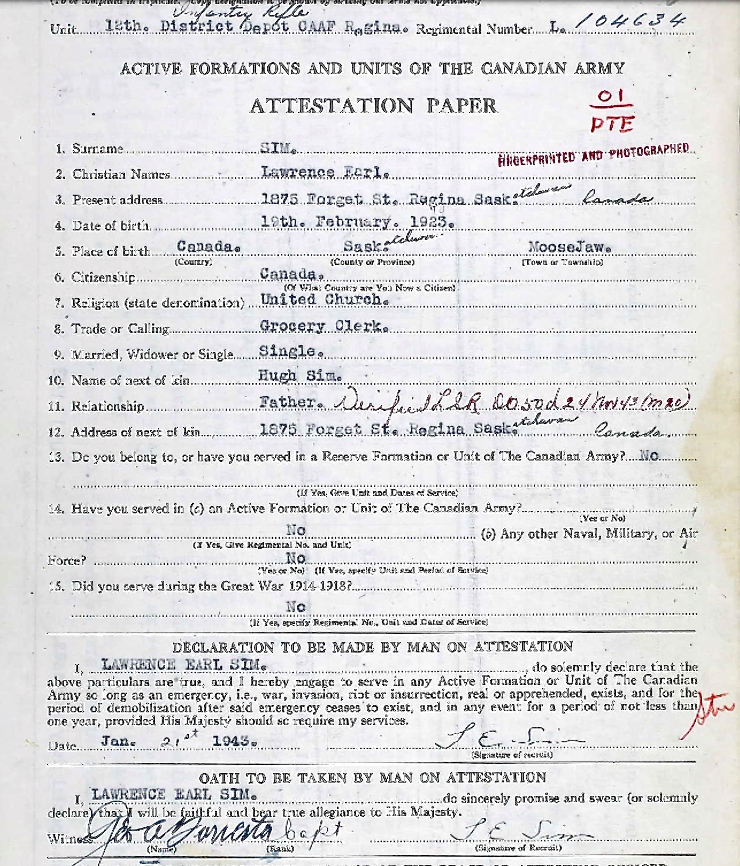 Infantry Rifle
Unit 12th. District Depot CAAF Regina. Regimental Number L. 104634
ACTIVE FORMATIONS AND UNITS OF THE CANADIAN ARMY
ATTESTATION PAPER
01
PTE
FINGERPRINTED AND PHOTOGRAPHED
1. Surname SIM.
2. Christian Names Lawrence Earl.
3. Present address 1875 Forget St. Regina Sask.atchewan Canada
4. Date of birth 19th. February. 1923.
5. Place of birth Canada. Sask.atchewan MooseJaw.
(Country) (County or Province) (Town or Township)
6. Citizenship Canada.
(Of What Country are You Now a Citizen)
7. Religion (state denomination) United Church.
8. Trade or Calling Grocery Clerk.
9. Married, Widower or Single Single.
10. Name of next of kin Hugh Sim.
11. Relationship Father. Verified
12. Address of next of kin 1875 Forget St. Regina Sask.atchewan Canada.
13. Do you belong to, or have you served in a Reserve Formation or Unit of The Canadian Army? No.
(If Yes, Give Unit and Dates of Service)
14. Have you served in (a) an Active Formation or Unit of The Canadian Army?
(Yes or No)
No (b) Any other Naval, Military, or Air
(If Yes, Give Regimental No. and Unit)
Force? No
(Yes or No) (If Yes, specify Unit and Period of Service)
15. Did you serve during the Great War 1914-1918?
No
(If Yes, specify Regimental No., Unit and Dates of Service)
DECLARATION TO BE MADE BY MAN ON ATTESTATION
I, LAWRENCE EARL SIM. , do solemnly declare that the
above particulars are true, and I hereby engage to serve in any Active Formation or Unit of The Canadian
Army so long as an emergency, i.e., war, invasion, riot or insurrection, real or apprehended, exists, and for the
period of demobilization after said emergency ceases to exist, and in any event for a period of not less than
one year, provided His Majesty should so require my services.
Date Jan. 21st 1943. L E Sim
(Signature of recruit)
OATH TO BE TAKEN BY MAN ON ATTESTATION
I, LAWRENCE EARL SIM. do sincerely promise and swear (or solemnly
declare) that I will be faithful and bear true allegiance to His Majesty.
Witness Capt L E Sim
(Name) (Rank) (Signature of Recruit)